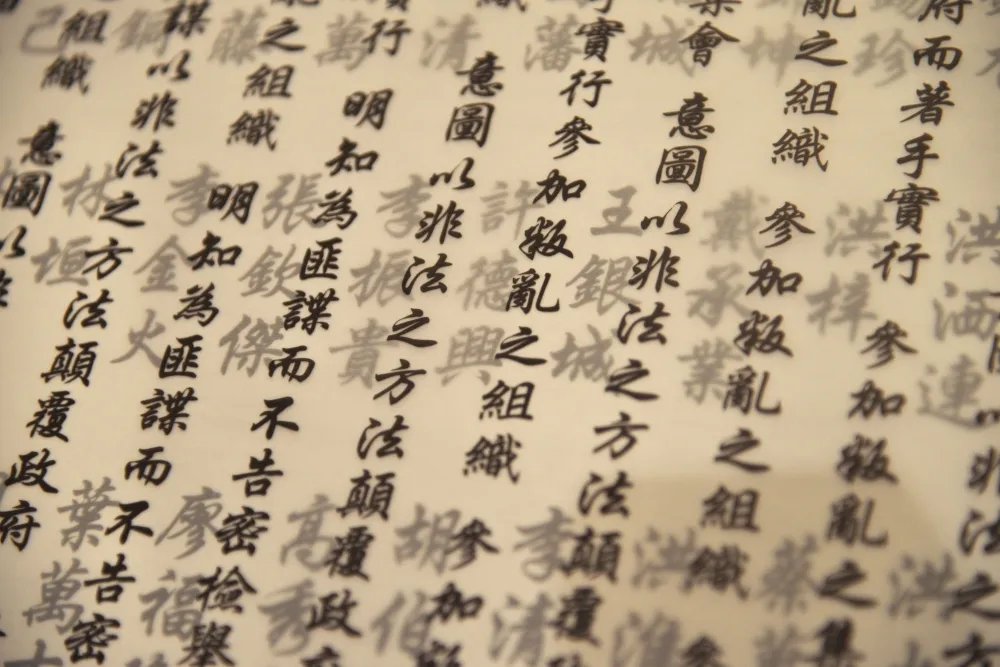 圖以非法之方
府而著手實行 參加叛亂之集
亂之組織 參加叛亂之組織 參
集會 意圖以非法之方法顛覆
手實行參加叛亂之組織 參加叛
織 意圖以非法之方法顛覆政
實行 明知為匪諜而不告密檢舉
亂之組織 明知為匪諜而不告密
諜以非法之方法顛覆政府
組織 意圖以非
洪洒連
珍 洪梓 洪
坤 戴承業 蔡
城 王銀城 洪
藩 許德興 李清
清 李振貴 胡伯
萬 張欽傑 高秀
藤 李金火 廖福
林垣 葉萬
己